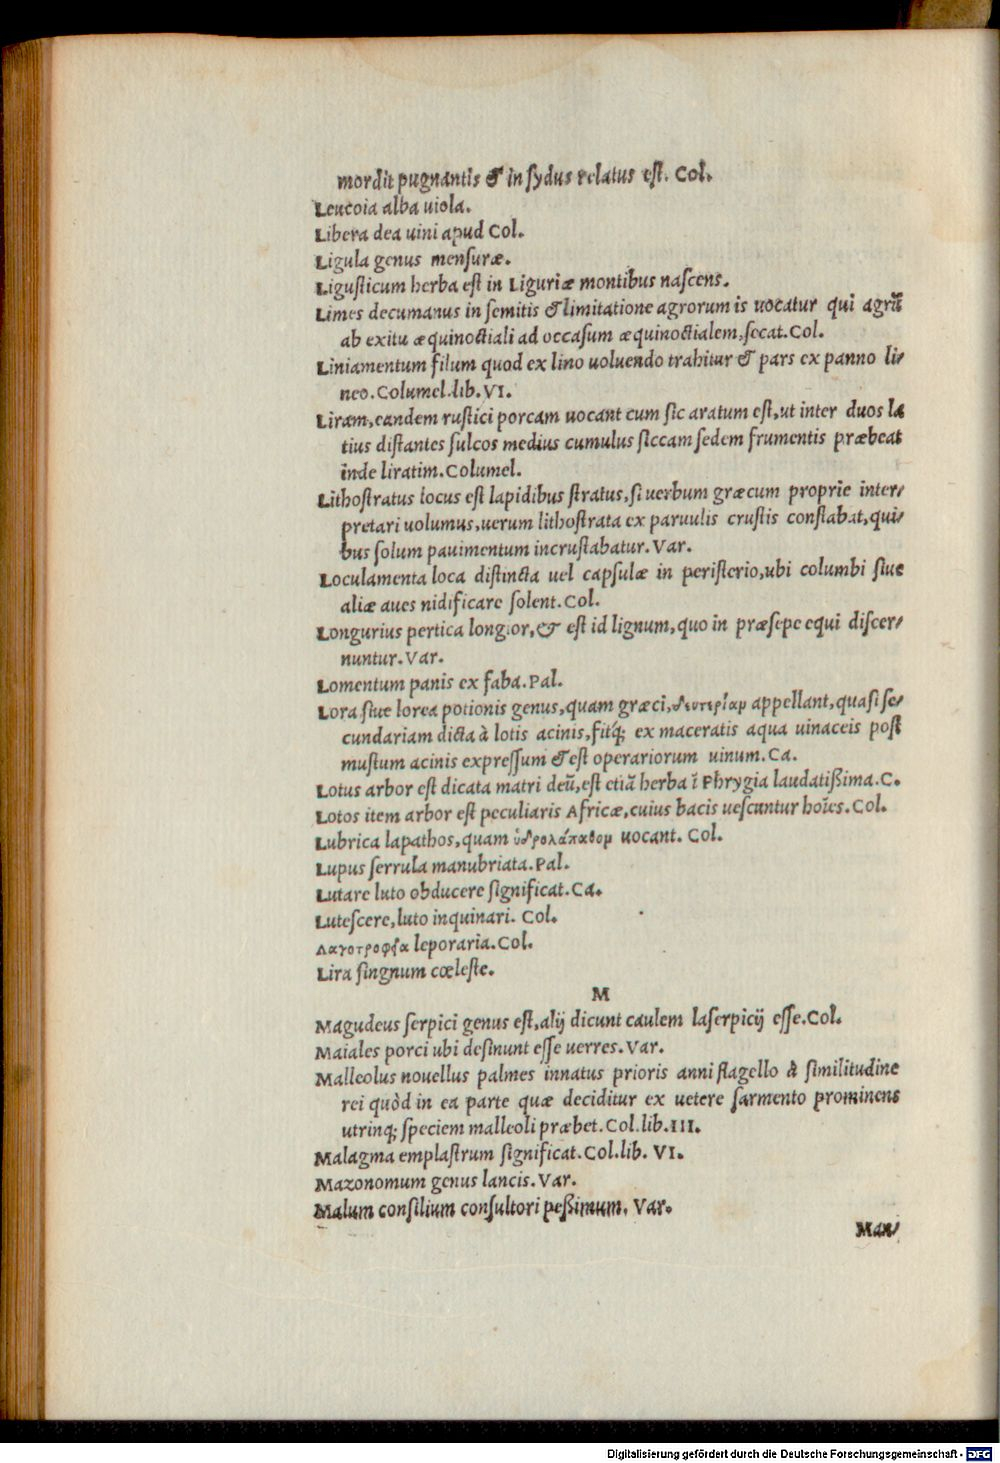 mordit pugnantis & in ſydus relatus eſt. Col.
Leucoia alba uiola.
Libera dea uini apud Col.
Ligula genus menſuræ.
Liguſticum herba eſt in Liguriæ montibus naſcens.
Limes decumanus in ſemitis & limitatione agrorum is uocatur qui agrũ
ab exitu æquinoctiali ad occaſum æquinoctialem, ſecat. Col.
Liniamentum filum quod ex lino uoluendo trahitur & pars ex panno li/
neo. Columel. lib. VI.
Liram, eandem ruſtici porcam uocant cum ſic aratum eſt, ut inter duos la
tius diſtantes ſulcos medius cumulus ſiccam ſedem frumentis præbeat
inde liratim. Columel.
Lithoſtratus locus eſt lapidibus ſtratus, ſi uerbum græcum proprie inter/
pretari uolumus, uerum lithoſtrata ex paruulis cruſtis conſtabat, qui/
bus ſolum pauimentum incruſtabatur. Var.
Loculamenta loca diſtincta uel capſulæ in periſterio, ubi columbi ſiue
aliæ aues nidificare ſolent. Col.
Longurius pertica longior, & eſt id lignum, quo in præſepe equi diſcer/
nuntur. Var.
Lomentum panis ex faba. Pal.
Lora ſiue lorea potionis genus, quam græci, δευτερίαμ appellant, quaſi ſe/
cundariam dicta à lotis acinis, fitq́; ex maceratis aqua uinaceis poſt
muſtum acinis expreſſum & eſt operariorum uinum. Ca.
Lotus arbor eſt dicata matri deũ, eſt etiã herba ĩ Phrygia laudatißima. C.
Lotos item arbor eſt peculiaris Africæ, cuius bacis ueſcuntur hoĩes. Col.
Lubrica lapathos, quam ὑδρολάπαθομ uocant. Col.
Lupus ſerrula manubriata. Pal.
Lutare luto obducere ſignificat. Ca.
Luteſcere, luto inquinari. Col.
Λαγοτροφία leporaria. Col.
Lira ſingnum cœleſte.
M
Magudeus ſerpici genus eſt, alij dicunt caulem laſerpicij eſſe. Col.
Maiales porci ubi deſinunt eſſe uerres. Var.
Malleolus nouellus palmes innatus prioris anni flagello à ſimilitudine
rei quòd in ea parte quæ deciditur ex uetere ſarmento prominens
utrinq; ſpeciem malleoli præbet. Col. lib. III.
Malagma emplaſtrum ſignificat. Col. lib. VI.
Mazonomum genus lancis. Var.
Malum conſilium conſultori peßimum. Var.
Man/
Digitalisierung gefördert durch die Deutsche Forschungsgemeinschaft - DFG